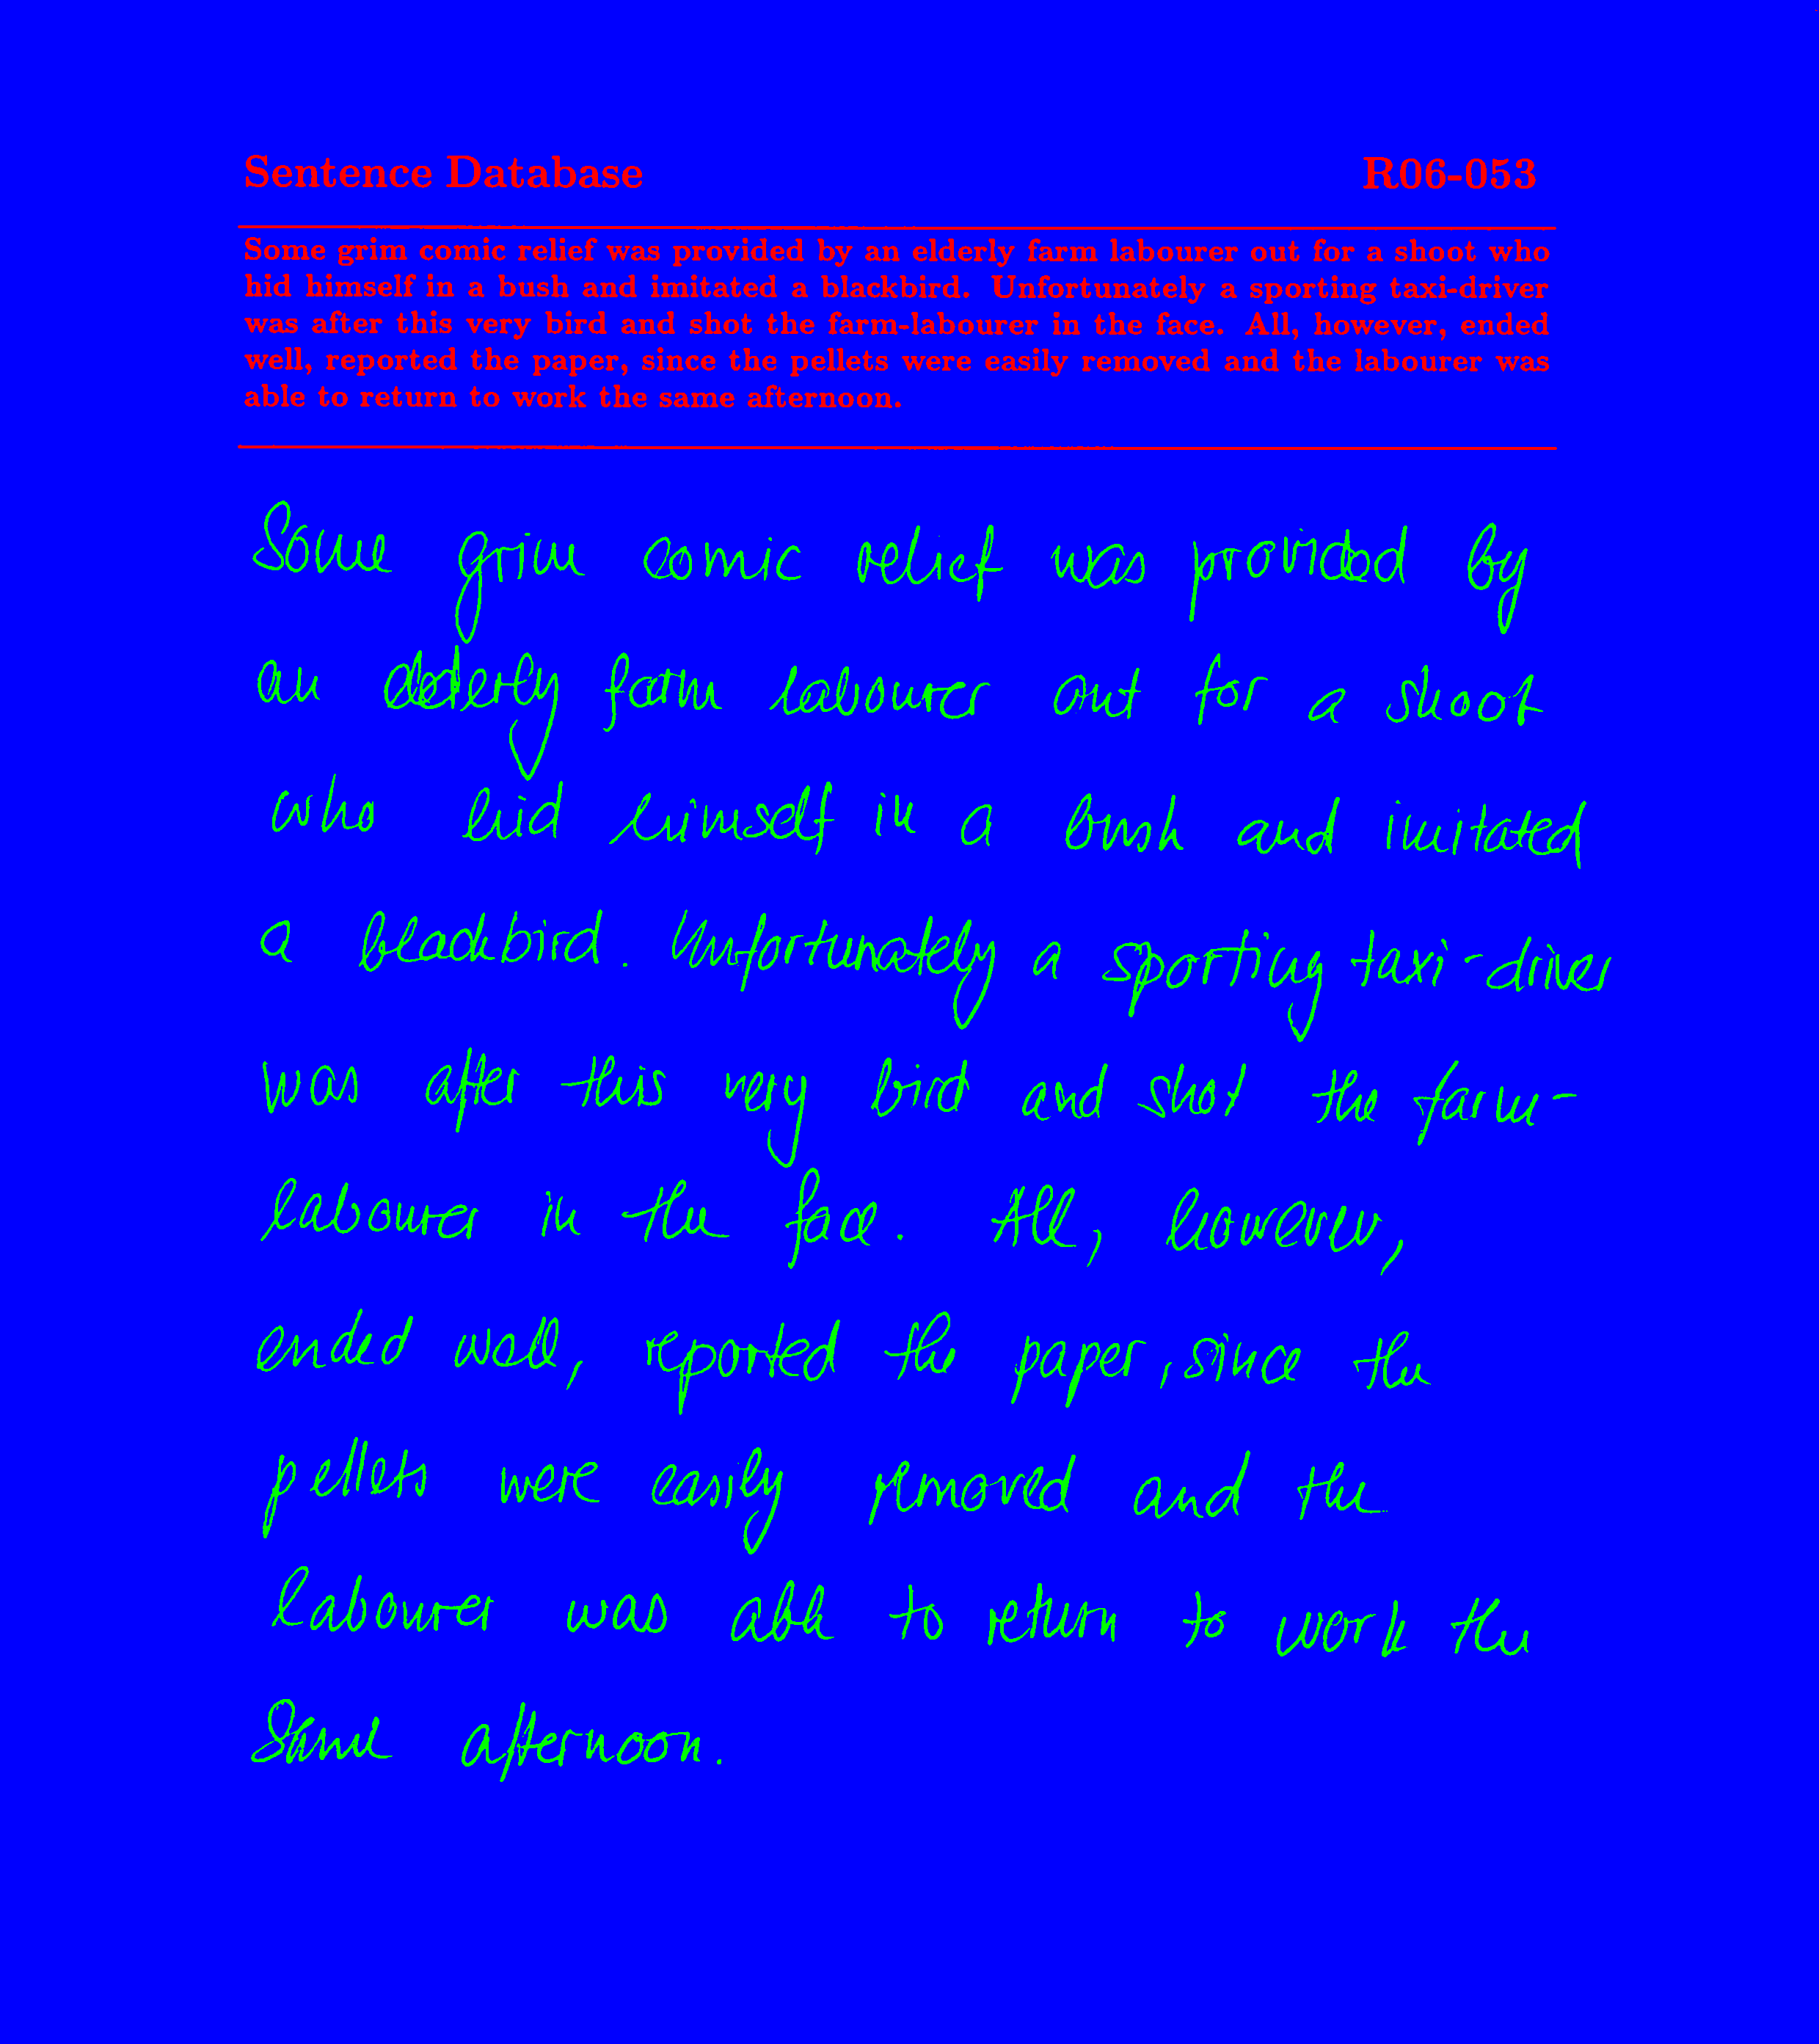 Sentence Database R06-053
Some grim comic relief was provided by an elderly farm labourer out for a shoot who
hid himself in a bush and imitated a blackbird. Unfortunately a sporting taxi-driver
was after this very bird and shot the farm-labourer in the face. All, however, ended
well, reported the paper, since the pellets were easily removed and the labourer was
able to return to work the same afternoon.
Some grim comic relief was provided by
an elderly farm labourer out for a shoot
who hid himself in a bush and imitated
a blackbird. Unfortunately a sporting taxi-driver
was after this very bird and shot the farm-
labourer in the face. All, however,
ended well, reported the paper, since the
pellets were easily removed and the
labourer was able to return to work the
same afternoon.